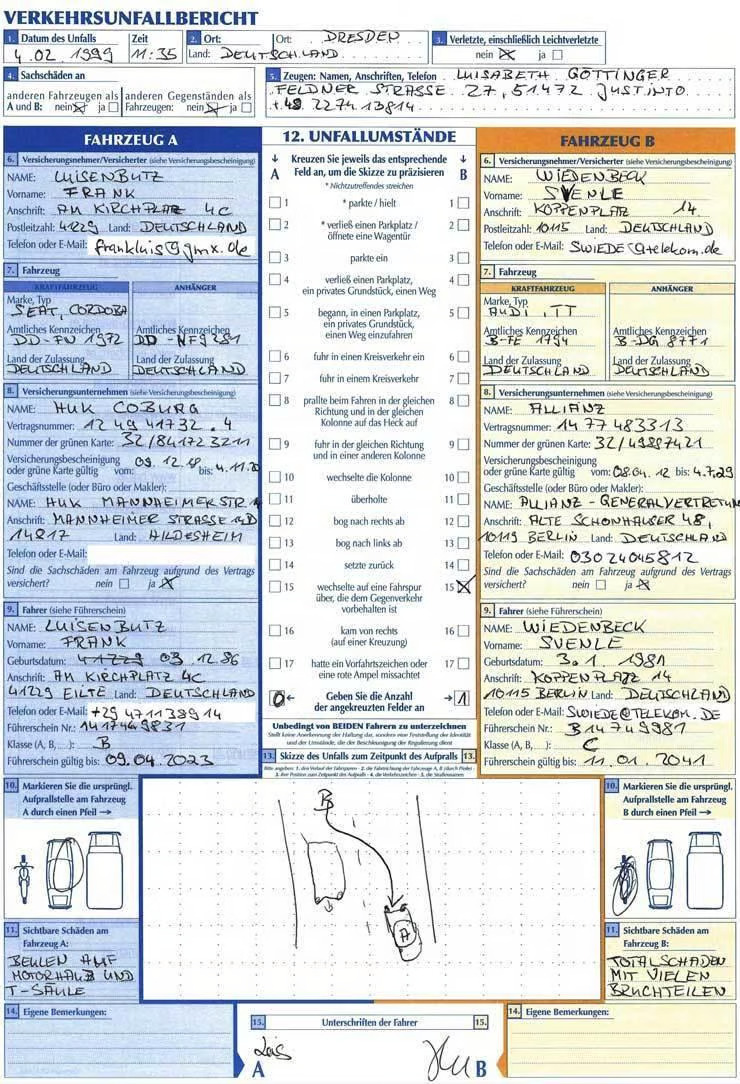 VERKEHRSUNFALLBERICHT
1. Datum des Unfalls Zeit
4.02.1999 11:35
2. Ort: Ort: DRESDEN
Land: DEUTSCHLAND
3. Verletzte, einschließlich Leichtverletzte
nein ja
4. Sachschäden an
anderen Fahrzeugen als A und B: nein ja
anderen Gegenständen als Fahrzeugen: nein ja
5. Zeugen: Namen, Anschriften, Telefon LUISABETH GÖTTINGER
FELDNER STRASSE 27, 51472 JUSTINTO
+49 2274 13814
FAHRZEUG A
6. Versicherungsnehmer/Versicherter (siehe Versicherungsbescheinigung)
NAME: LUISENBUTZ
Vorname: FRANK
Anschrift: AM KIRCHPLATZ 4C
Postleitzahl: 41229 Land: DEUTSCHLAND
Telefon oder E-Mail: frankluis@gmx.de
7. Fahrzeug
KRAFTFAHRZEUG ANHÄNGER
Marke, Typ
SEAT, CORDOBA
Amtliches Kennzeichen Amtliches Kennzeichen
DD-FU 1972 DD-NF9381
Land der Zulassung Land der Zulassung
DEUTSCHLAND DEUTSCHLAND
8. Versicherungsunternehmen (siehe Versicherungsbescheinigung)
NAME: HUK COBURG
Vertragsnummer: 12 49 41732.4
Nummer der grünen Karte: 32/841723211
Versicherungsbescheinigung
oder grüne Karte gültig vom: 09.12. bis: 4.11.
Geschäftsstelle (oder Büro oder Makler):
NAME: HUK MANNHEIMER STR
Anschrift: MANNHEIMER STRASSE
14817 Land: HILDESHEIM
Telefon oder E-Mail:
Sind die Sachschäden am Fahrzeug aufgrund des Vertrags
versichert? nein ja
9. Fahrer (siehe Führerschein)
NAME: LUISENBUTZ
Vorname: FRANK
Geburtsdatum: 41229 03.12.86
Anschrift: AM KIRCHPLATZ 4C
41229 EILTE Land: DEUTSCHLAND
Telefon oder E-Mail: +29 471138914
Führerschein Nr.: 1417469831
Klasse (A, B,....): B
Führerschein gültig bis: 09.04.2023
10. Markieren Sie die ursprüngl.
Aufprallstelle am Fahrzeug
A durch einen Pfeil →
11. Sichtbare Schäden am
Fahrzeug A:
BEULEN AUF
MOTORHAUB UND
T-SÄULE
14. Eigene Bemerkungen:
12. UNFALLUMSTÄNDE
Kreuzen Sie jeweils das entsprechende
Feld an, um die Skizze zu präzisieren
A B
* Nichtzutreffendes streichen
1 * parkte / hielt 1
2 * verließ einen Parkplatz / 2
öffnete eine Wagentür
3 parkte ein 3
4 verließ einen Parkplatz, 4
ein privates Grundstück, einen Weg
5 begann, in einen Parkplatz, 5
ein privates Grundstück,
einen Weg einzufahren
6 fuhr in einen Kreisverkehr ein 6
7 fuhr in einem Kreisverkehr 7
8 prallte beim Fahren in der gleichen 8
Richtung und in der gleichen
Kolonne auf das Heck auf
9 fuhr in der gleichen Richtung 9
und in einer anderen Kolonne
10 wechselte die Kolonne 10
11 überholte 11
12 bog nach rechts ab 12
13 bog nach links ab 13
14 setzte zurück 14
15 wechselte auf eine Fahrspur 15
über, die dem Gegenverkehr
vorbehalten ist
16 kam von rechts 16
(auf einer Kreuzung)
17 hatte ein Vorfahrtszeichen oder 17
eine rote Ampel missachtet
0 ← Geben Sie die Anzahl → 1
der angekreuzten Felder an
Unbedingt von BEIDEN Fahrern zu unterzeichnen
Stellt keine Anerkennung der Haftung dar, sondern eine Feststellung der Identität
und der Umstände, die der Beschleunigung der Regulierung dient
13. Skizze des Unfalls zum Zeitpunkt des Aufpralls 13.
B
A
15. Unterschriften der Fahrer 15.
A B
FAHRZEUG B
6. Versicherungsnehmer/Versicherter (siehe Versicherungsbescheinigung)
NAME: WIEDENBECK
Vorname: SVENLE
Anschrift: KOPPENPLATZ 14
Postleitzahl: 10115 Land: DEUTSCHLAND
Telefon oder E-Mail: SWIEDE@telekom.de
7. Fahrzeug
KRAFTFAHRZEUG ANHÄNGER
Marke, Typ
AUDI, TT
Amtliches Kennzeichen Amtliches Kennzeichen
B-FE 1794 B-DG 8771
Land der Zulassung Land der Zulassung
DEUTSCHLAND DEUTSCHLAND
8. Versicherungsunternehmen (siehe Versicherungsbescheinigung)
NAME: ALLIANZ
Vertragsnummer: 14 77 483313
Nummer der grünen Karte: 32/49887421
Versicherungsbescheinigung
oder grüne Karte gültig vom: 08.04.12 bis: 4.7.29
Geschäftsstelle (oder Büro oder Makler):
NAME: ALLIANZ - GENERALVERTRETUN
Anschrift: ALTE SCHÖNHAUSER 48,
10119 BERLIN Land: DEUTSCHLAND
Telefon oder E-Mail: 03024045812
Sind die Sachschäden am Fahrzeug aufgrund des Vertrags
versichert? nein ja
9. Fahrer (siehe Führerschein)
NAME: WIEDENBECK
Vorname: SVENLE
Geburtsdatum: 3.1.1981
Anschrift: KOPPENPLATZ 14
10115 BERLIN Land: DEUTSCHLAND
Telefon oder E-Mail: SWIEDE@TELEKOM.DE
Führerschein Nr.: B14749981
Klasse (A, B,....): C
Führerschein gültig bis: 11.01.2041
10. Markieren Sie die ursprüngl.
Aufprallstelle am Fahrzeug
B durch einen Pfeil →
11. Sichtbare Schäden am
Fahrzeug B:
TOTALSCHADEN
MIT VIELEN
BRUCHTEILEN
14. Eigene Bemerkungen: